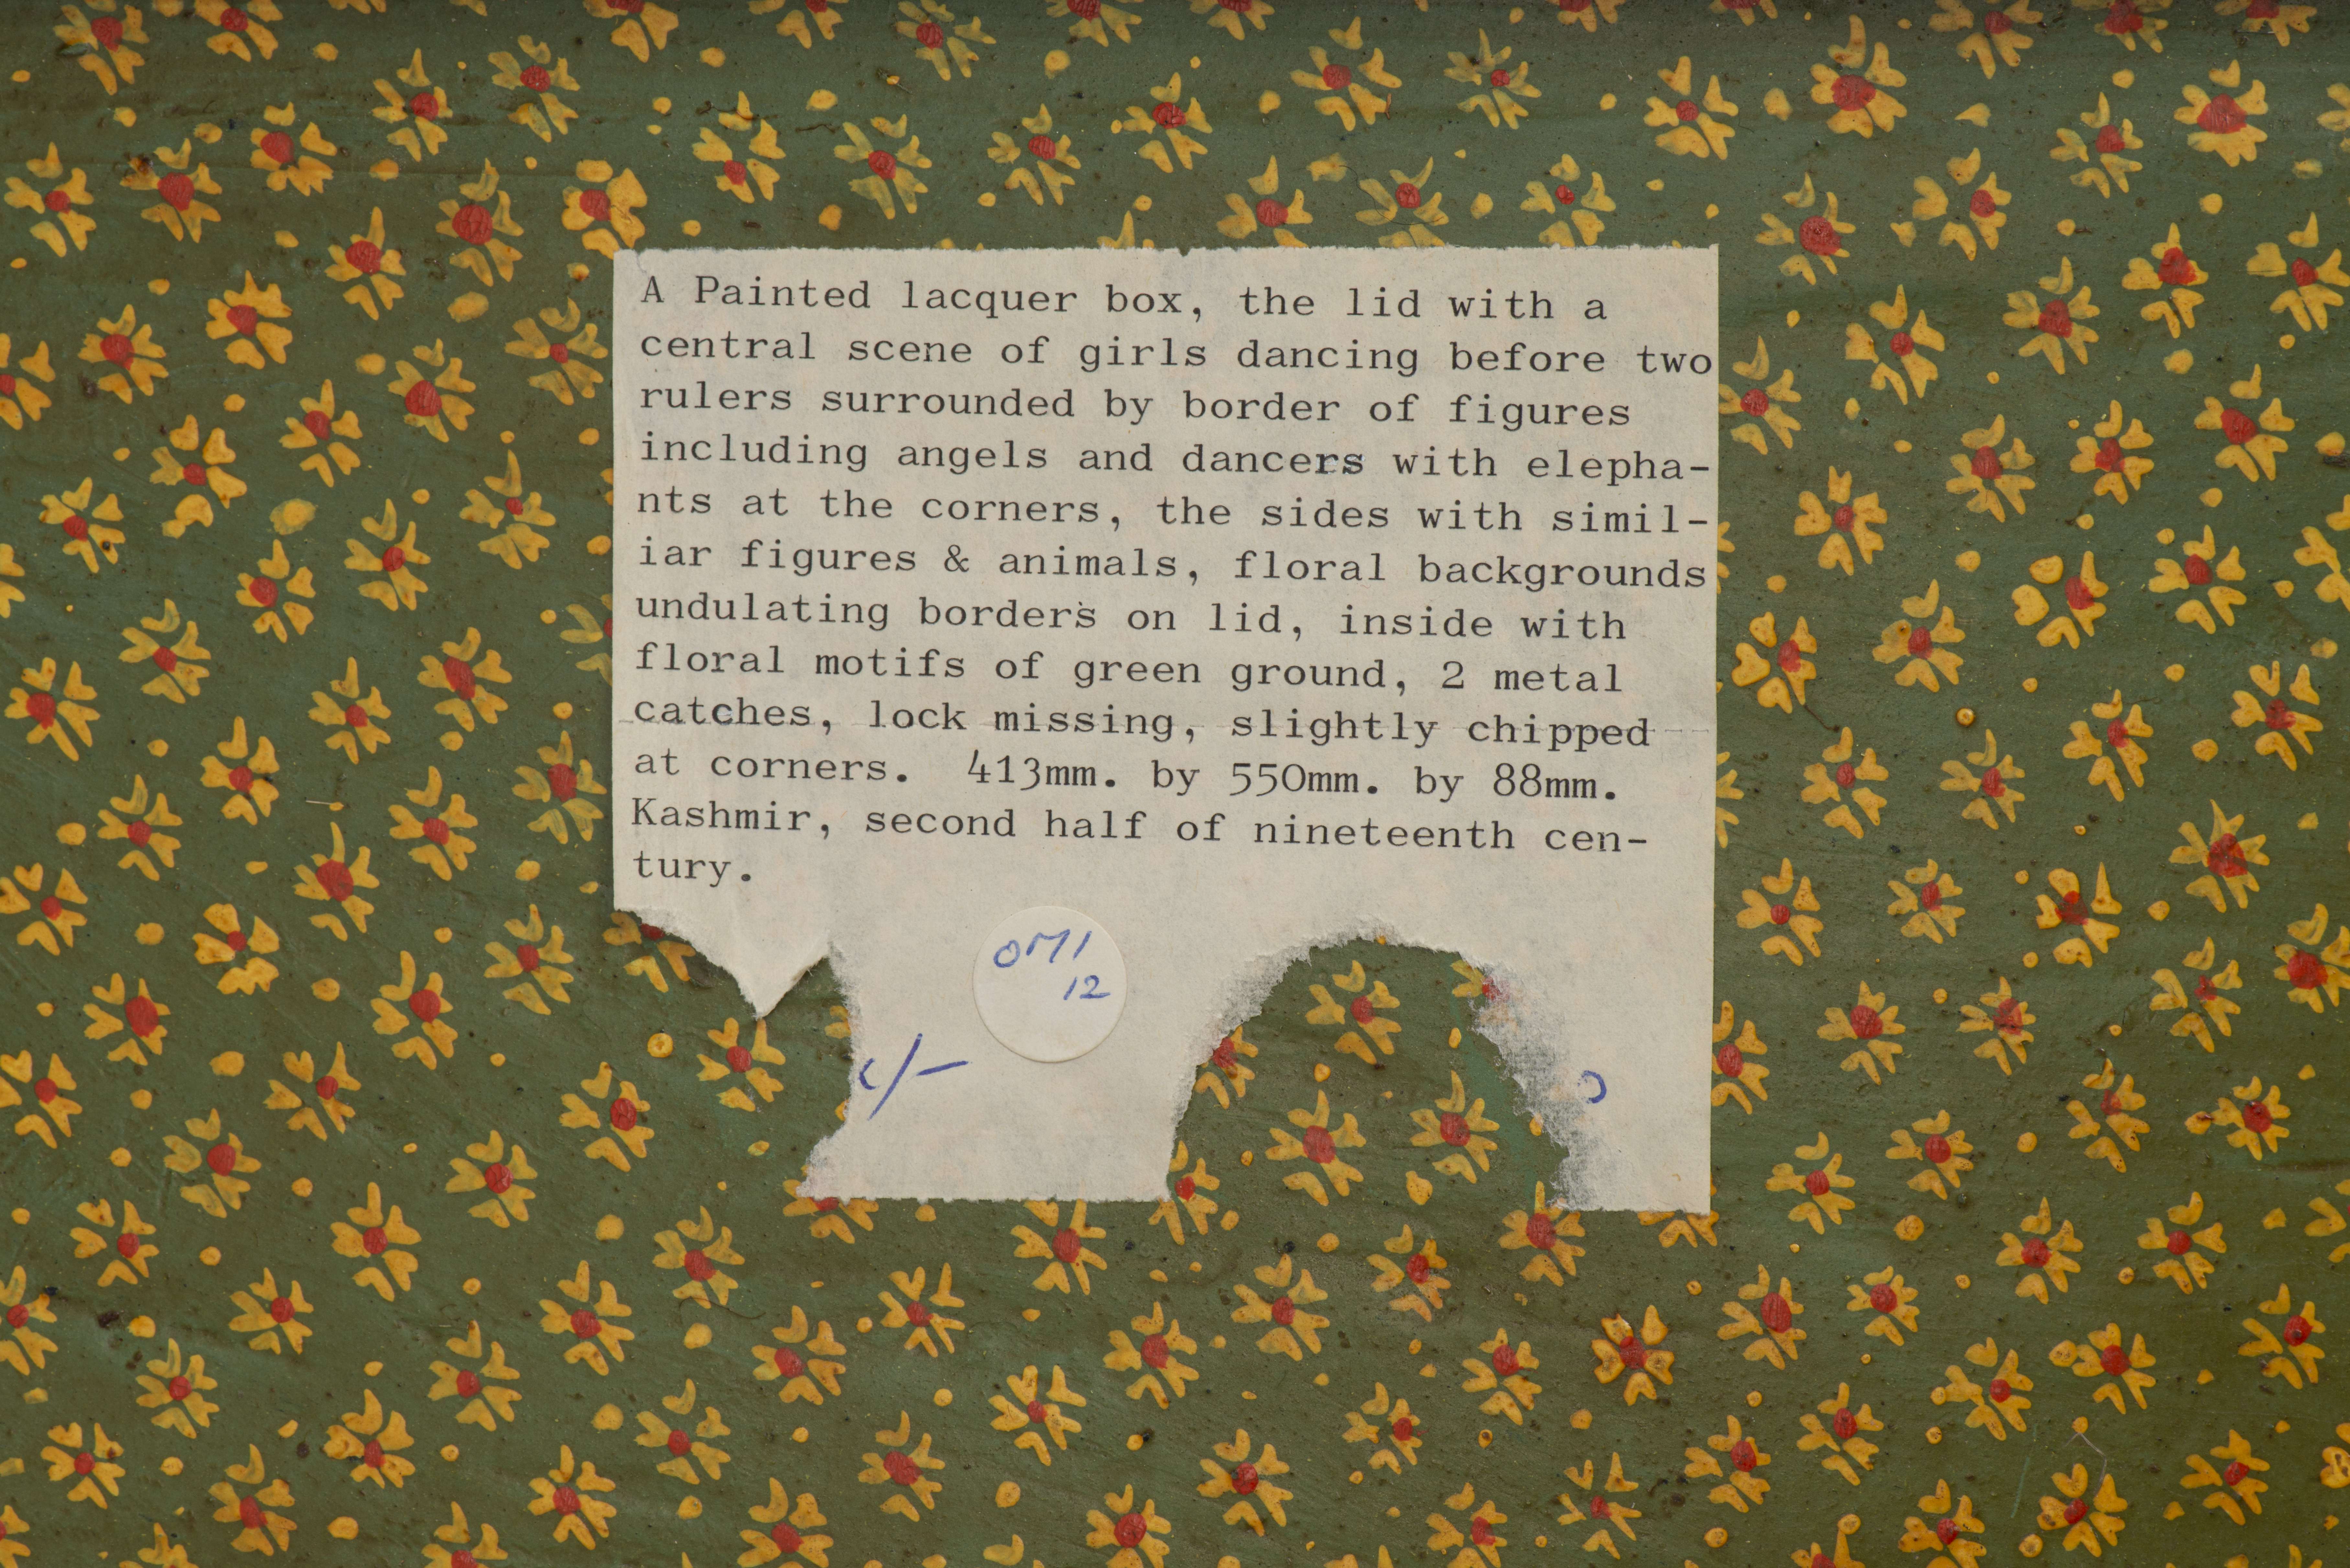 A Painted lacquer box, the lid with a
central scene of girls dancing before two
rulers surrounded by border of figures
including angels and dancers with elepha-
nts at the corners, the sides with simil-
iar figures & animals, floral backgrounds
undulating borders on lid, inside with
floral motifs of green ground, 2 metal
catches, lock missing, slightly chipped
at corners. 413mm. by 550mm. by 88mm.
Kashmir, second half of nineteenth cen-
tury.
12